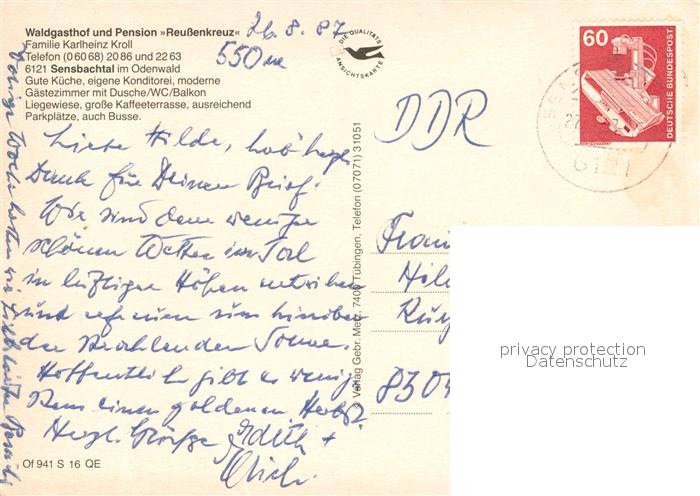 Waldgasthof und Pension »Reußenkreuz«
Familie Karlheinz Kroll
Telefon (0 60 68) 20 86 und 22 63
6121 Sensbachtal im Odenwald
Gute Küche, eigene Konditorei, moderne
Gästezimmer mit Dusche/WC/Balkon
Liegewiese, große Kaffeeterrasse, ausreichend
Parkplätze, auch Busse.
26.8.87
550 m
DIE QUALITÄTS
ANSICHTSKARTE
60
DEUTSCHE BUNDESPOST
6121
DDR
Liebe Hilde, hab' herzl.
Dank für Deinen Brief.
Wir sind dem weniger
schönen Wetter im Tal
in luftige Höhen
und uns hier oben
der strahlenden Sonne.
Hoffentlich gibt es wenigs-
tens einen goldenen Herbst.
Herzl. Grüße Edith +
Vorige Woche hatten wir Besuch
© Verlag Gebr. Metz, 7400 Tübingen, Telefon (07071) 31051
Frau
Hil
830
Of 941 S 16 QE
privacy protection
Datenschutz